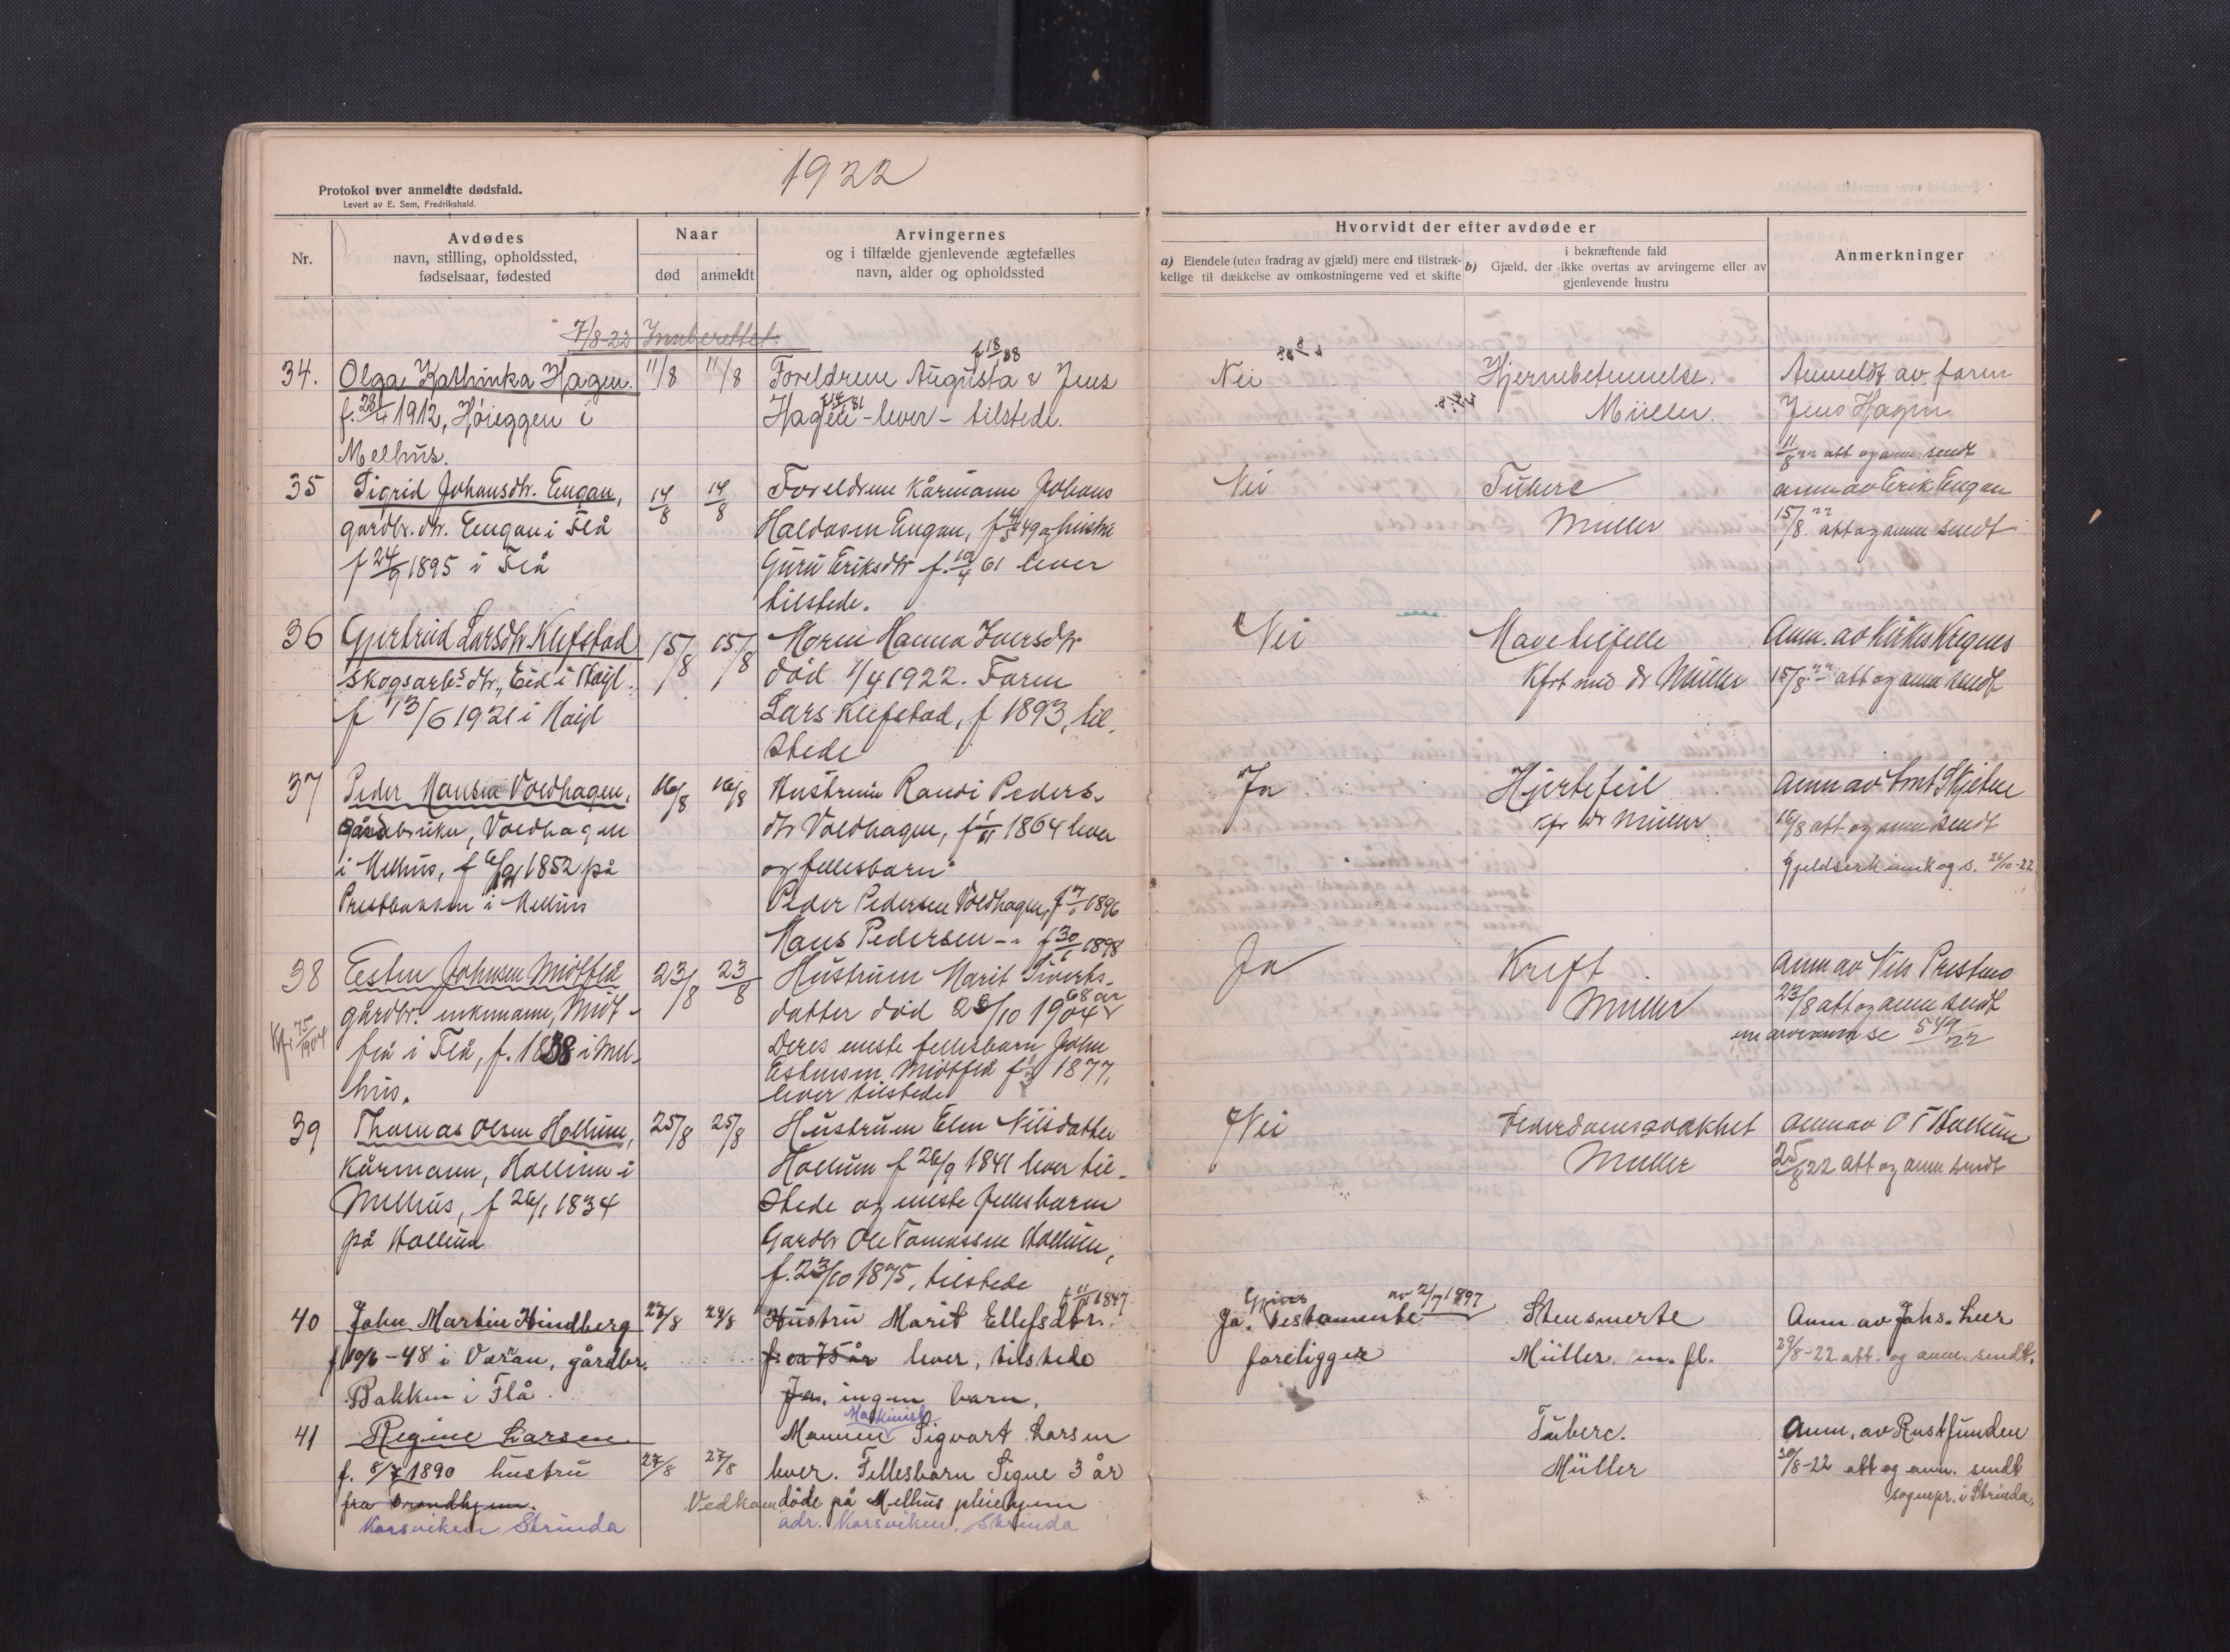 1922
Protokol over anmeldte dødsfald.
Levert av E. Sem, Fredrikshald.
Nr.
Avdødes
navn, stilling, opholdssted,
fødselsaar, fødested
Naar
død
anmeldt
Arvingernes
og i tilfælde gjenlevende ægtefælles
navn, alder og opholdssted
Hvorvidt der efter avdøde er
a) Eiendele (uten fradrag av gjæld) mere end tilstræk-
kelige til dækkelse av omkostningerne ved et skifte
i bekræftende fald
b) Gjæld, der ikke overtas av arvingerne eller av
gjenlevende hustru
Anmerkninger
7/8-22 Innberettet.
34.
Olga Kathinka Hagen.
f. 28/4 1912, Høieggen i
Melhus.
11/8
11/8
f 18/1 88
Foreldrene Augusta & Jens
Hagen - lever - tilstede.
Nei
Hjernebetennelse.
Müller.
Anmeldt av faren
Jens Hagen
11/8 22 att og anm. sendt
35
Sigrid Johansdtr. Engan,
gardbr. dtr. Engan i Flå
f 24/9 1895 i Flå
14/8
14/8
Foreldrene kårmann Johans
Haldosen Engan, f 4/5 49 og hustru
Guru Eriksdtr f. 10/4 61 lever
tilstede.
Nei
Tuberc
Müller
anm av Erik Engan
15/8 22 att og anm sendt
36
Gjertrud Larsdtr Klefstad
skogsarb.s dtr., Eid i Høil.
f 13/6 1921 i Høil
15/8
15/8
Moren Hanna Iversdtr
död 7/4 1922. Faren
Lars Klefstad, f 1893, til-
stede
Nei
Mavetilfelle
Kfrt med dr Müller
Anm. av Kirkes Kregnes
15/8 22 att og anm sendt
37
Peder Hansen Voldhagen,
Gårdbruker, Voldhagen
i Melhus, f 6/12 1852 på
Prestbakken i Melhus
16/8
16/8
Hustruen Randi Peders-
dtr Voldhagen, f 1/11 1864 lever
og fellesbarn:
Peder Pedersen Voldhagen, f 7/1 1896
Hans Pedersen -"- f 30/1 1898
Ja
Hjertefeil
Kfr dr Müller
anm av Lmt Skjetne
16/8 att og anm sendt
Gjeldserkl. innk og s. 26/10-22
38
Kfr 75/1904
Esten Johnsen Midtflå
gårdbr. enkemann, Midt-
flå i Flå, f. 1838 i Mel-
hus.
23/8
23/8
Hustruen Marit Siverts-
datter död 23/10 1904 68 år
Deres eneste fellesbarn John
Estensen Midtflå f 1877,
lever tilstede
Ja
Kreft.
Müller
anm av Nils Prestmo
23/8 att og anm sendt
om arveanm se 549/22
39
Thomas Olsen Hollum,
Kårmann, Hollum i
Melhus, f 26/1 1834
på Hollum
25/8
25/8
Hustruen Elen Nilsdatter
Hollum f 26/9 1841 lever til-
stede og eneste fellesbarn
Gardbr Ole Tomassen Hollum,
f. 23/10 1875, tilstede
Nei
Alderdomssvakhet
Müller
anm av O T Hollum
25/8 22 att og anm sendt
40
John Martin Hindberg
f 10/6 - 48 i Væran, gårdbr.
Bakken i Flå.
27/8
29/8
f 11/11 1847
Hustru Marit Ellefsdtr.
f. ca 75 år lever, tilstede
Jen. ingen barn,
Gjens av 2/7 1897
Ja. Testamente
foreligger
Stensmerte
Müller m. fl.
Anm av Johs. Leer
29/8-22 att. og anm. sendt.
41
Regine Larsen
f. 8/7 1890 hustru
fra Trondhjem.
Korsviken Strinda
27/8
27/8
Maskinist
Mannen Sigvart Larsen
lever. Fellesbarn Signe 3 år
Vedkom döde på Melhus pleiehjem
adr. Korsviken, Strinda
Tuberc.
Müller
Anm. av Rustfunden
30/8-22 att og anm. sendt
sognepr. i Strinda.